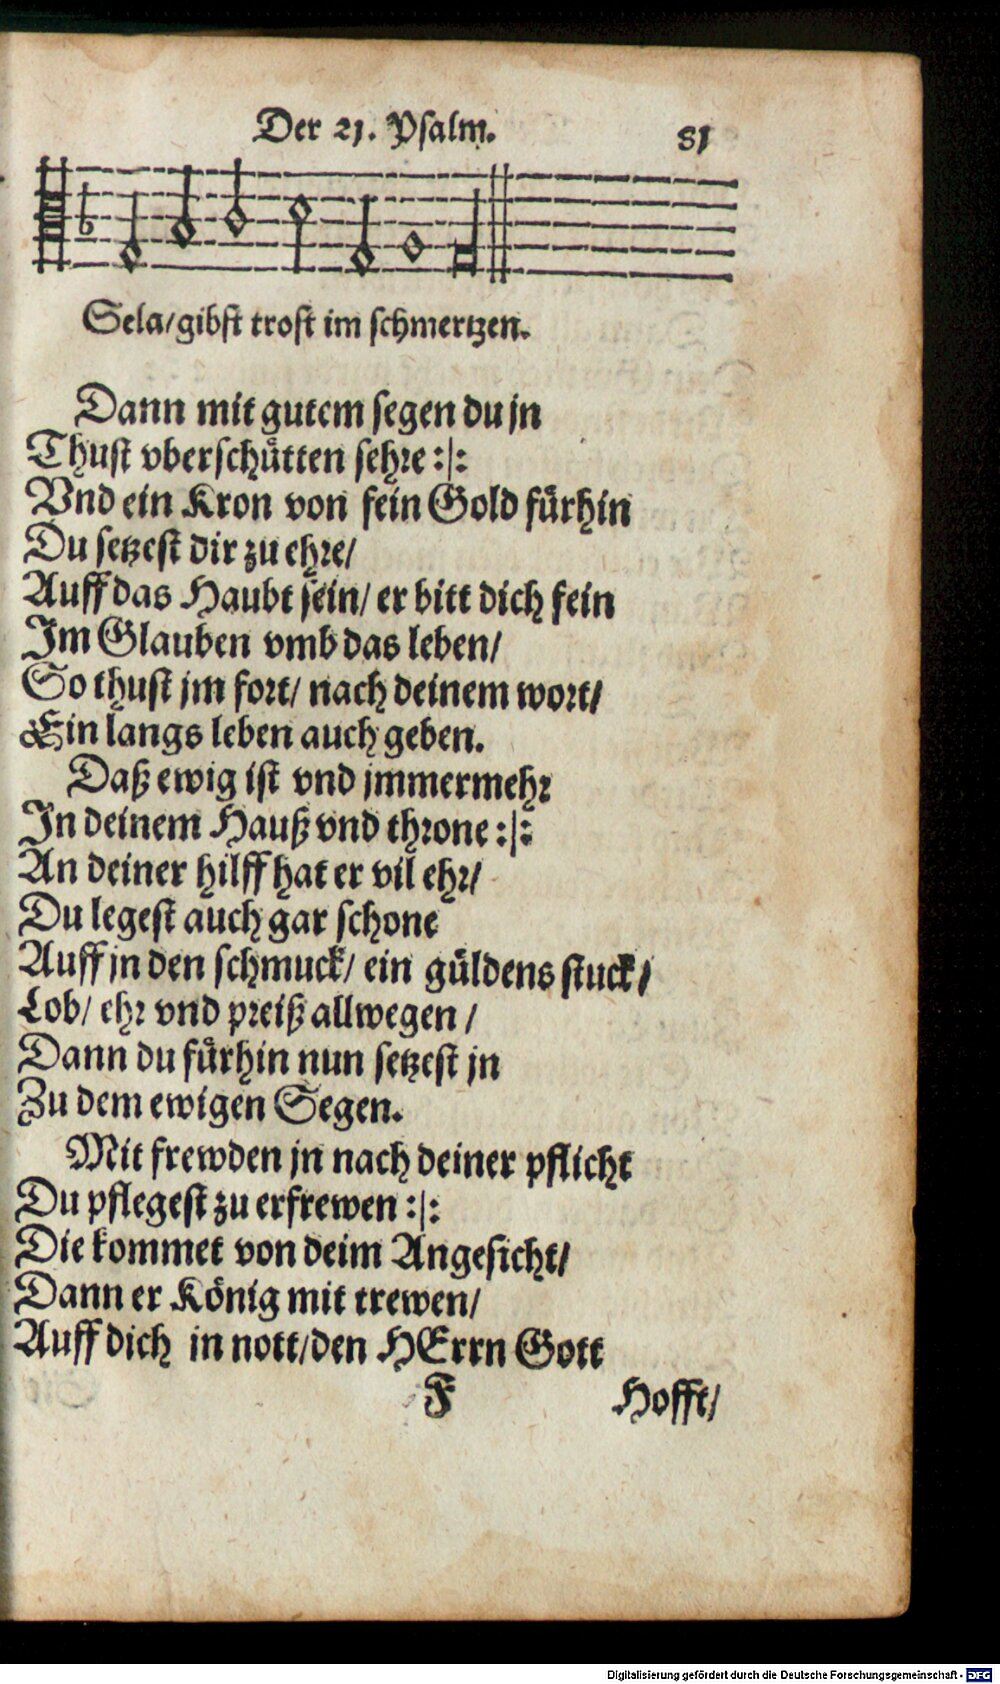 Der 21. Psalm. 81
Sela/gibst trost im schmertzen.
Dann mit gutem segen du jn
Thust vberschütten sehre :|:
Vnd ein Kron von fein Gold fürhin
Du setzest dir zu ehre/
Auff das Haubt sein/ er bitt dich fein
Im Glauben vmb das leben/
So thust jm fort/ nach deinem wort/
Ein langs leben auch geben.
Daß ewig ist vnd jmmermehr
In deinem Hauß vnd throne :|:
An deiner hilff hat er vil ehr/
Du legest auch gar schone
Auff jn den schmuck/ ein güldens stuck/
Lob/ ehr vnd preiß allwegen /
Dann du fürhin nun setzest jn
Zu dem ewigen Segen.
Mit frewden jn nach deiner pflicht
Du pflegest zu erfrewen :|:
Die kommet von deim Angesicht/
Dann er König mit trewen/
Auff dich in nott/den HErrn Gott
F Hofft/
Digitalisierung gefördert durch die Deutsche Forschungsgemeinschaft - DFG